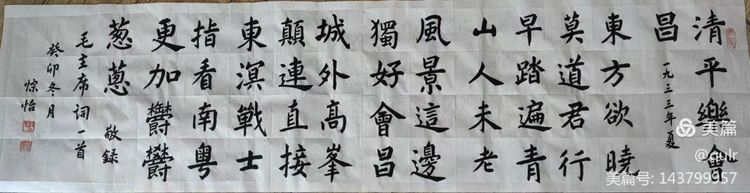 清平樂會
昌
一九三三年夏
東方欲曉
莫道君行
早踏遍青
山人未老
風景這邊
獨好會昌
城外高峯
顛連直接
東溟戰士
指看南粵
更加鬱鬱
葱蔥
敬錄
毛主席詞一首
癸卯冬月
怡
美篇
@qulr
美篇号: 143799957